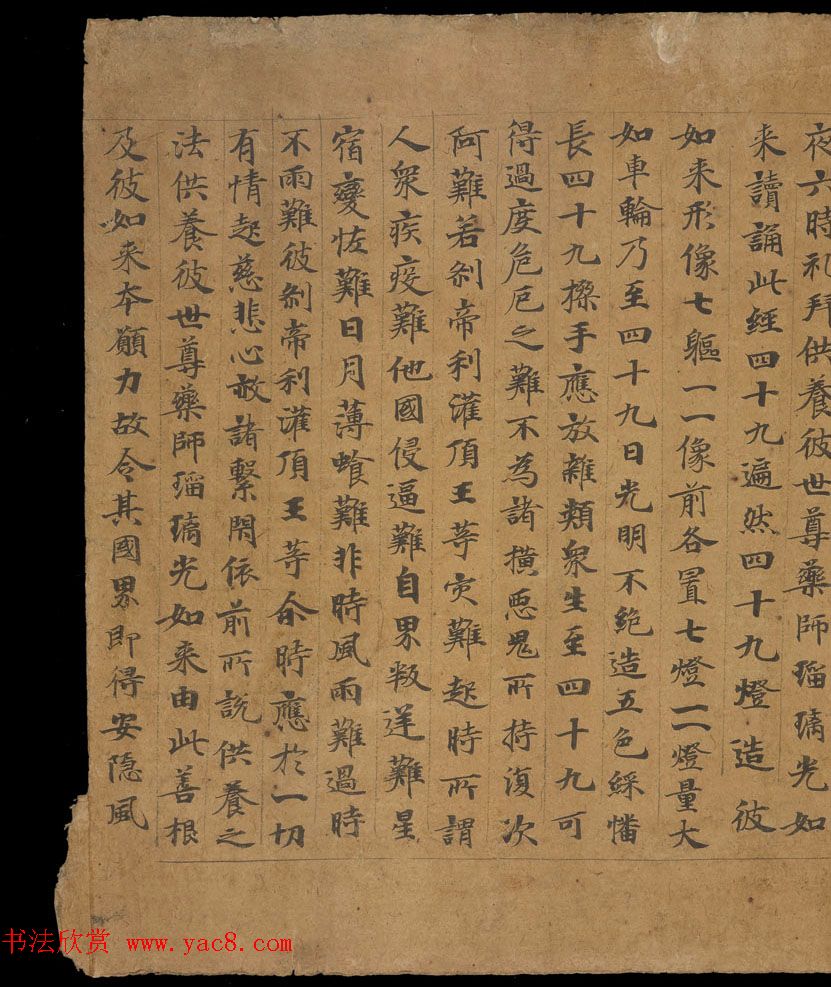 夜六時礼拜供養彼世尊藥師瑠璃光如
来讀誦此經四十九遍然四十九燈造彼
如来形像七軀一一像前各置七燈一一燈量大
如車輪乃至四十九日光明不絶造五色綵幡
長四十九搩手應放雜類衆生至四十九可
得過度危厄之難不為諸横惡鬼所持復次
阿難若刹帝利灌頂王等灾難起時所謂
人衆疾疫難他國侵逼難自界叛逆難星
宿變恠難日月薄蝕難非時風雨難過時
不雨難彼刹帝利灌頂王等尒時應於一切
有情起慈悲心赦諸繫閇依前所説供養之
法供養彼世尊藥師瑠璃光如来由此善根
及彼如来夲願力故令其國界即得安隐風
书法欣赏 www.yac8.com